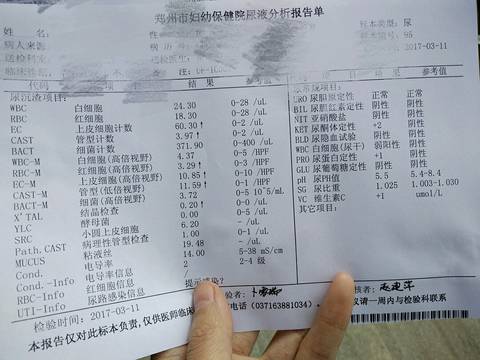 郑州市妇幼保健院尿液分析报告单
姓 名:
病人来源
送检科室
临床诊断
标本类型:尿
标本编号: 95
2017-03-11
代码 项目 结果 参考值
尿沉渣项目:
WBC 白细胞 24.30 0-28 /uL
RBC 红细胞 18.30 0-28 /uL
EC 上皮细胞计数 60.30↑ 0-2 /uL
CAST 管型计数 3.97↑ 0-2 /uL
BACT 细菌计数 371.90 0-400 /uL
WBC-M 白细胞(高倍视野) 4.37 0-5 /HPF
RBC-M 红细胞(高倍视野) 3.29↑ 0-3 /HPF
EC-M 上皮细胞(高倍视野) 10.85↑ 0-10 /HPF
CAST-M 管型(低倍视野) 11.59↑ 0-1 /HPF
BACT-M 细菌(高倍视野) 3.72
X'TAL 结晶检查 0.20↑
YLC 酵母菌 0.00
SRC 小圆上皮细胞 6.20
Path.CAST 病理性管型检查 1.00
MUCUS 粘液丝 19.48
Cond. 电导率 14.00 5-38 mS/cm
Cond.-Info 电导率信息 2 2-4 级
RBC-Info 红细胞信息 /
UTI-Info 尿路感染信息 提示感染?
结果 参考值
尿常规项目:
URO 尿胆原定性 正常 正常
BIL 尿胆红素定性 阴性 阴性
NIT 亚硝酸盐 阴性 阴性
KET 尿酮体定性 +2 阴性
BLD 尿隐血试验 阴性 阴性
WBC 白细胞(干) 弱阳性 阴性
PRO 尿蛋白定性 +1 阴性
GLU 尿葡萄糖定性 阴性 阴性
pH 尿PH值 5.5 5.4-8.4
SG 尿比重 1.025 1.003-1.030
VC 维生素C +1 umol/L
其它项目:
检验时间:2017-03-11
本报告仅对此标本负责,仅供医师临床
电话(037163881034)
议请一周内与检验科联系